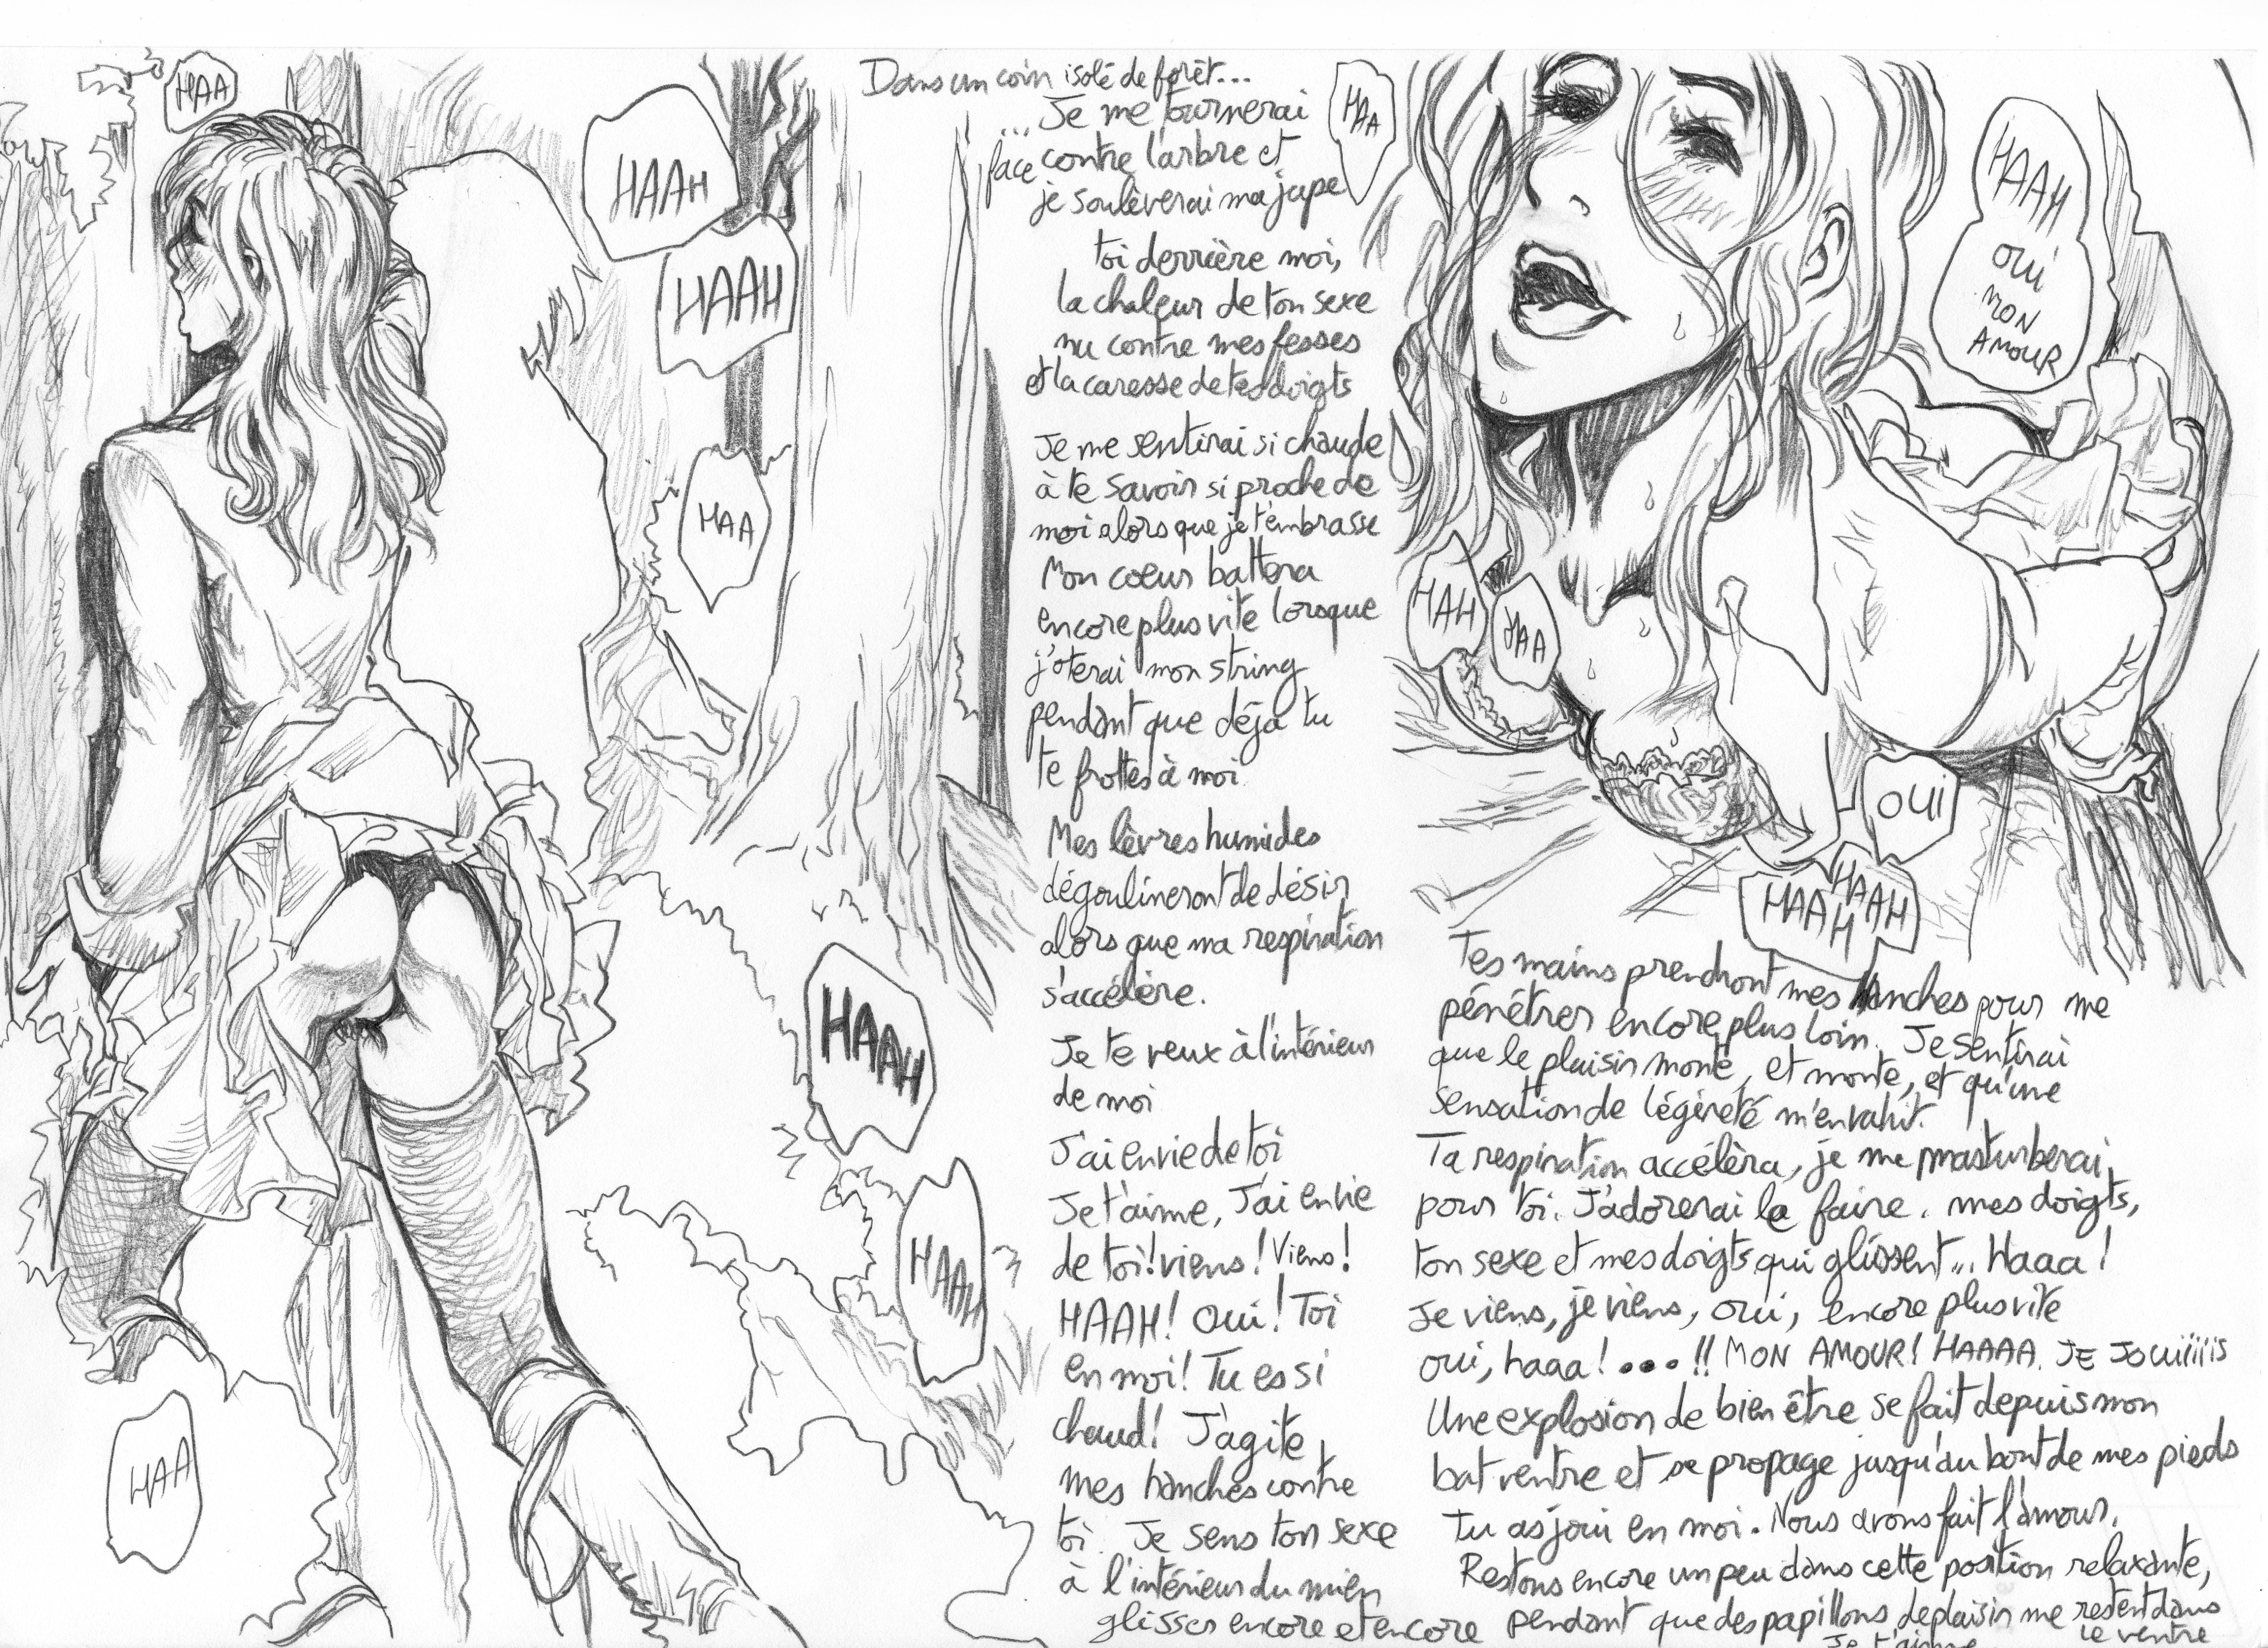 HAA
HAAH
HAAH
HAA
HAAH
HAAH
HAA
Dans un coin isolé de forêt...
... Je me tournerai
face contre l'arbre et
je soulèverai ma jupe
toi derrière moi,
la chaleur de ton sexe
nu contre mes fesses
et la caresse de tes doigts
Je me sentirai si chaude
à te savoir si proche de
moi alors que je t'embrasse
Mon coeur battera
encore plus vite lorsque
j'oterai mon string
pendant que déjà tu
te frottes à moi
Mes lèvres humides
dégoulineront de désir
alors que ma respiration
s'accélère.
Je te veux à l'intérieur
de moi
J'ai envie de toi
Je t'aime, J'ai envie
de toi! viens! Viens!
HAAH! Oui! Toi
en moi! Tu es si
chaud! J'agite
mes hanches contre
toi. Je sens ton sexe
à l'intérieur du mien
glisser encore et encore
HAA
HAAH
OUI
MON
AMOUR
HAH
HAA
OUI
HAAH
HAAH
Tes mains prendront mes hanches pour me
pénétrer encore plus loin. Je sentirai
que le plaisir monte, et monte, et qu'une
sensation de légèreté m'envahit.
Ta respiration accélèra, je me masturberai
pour toi. J'adorerai le faire. mes doigts,
ton sexe et mes doigts qui glissent... Haaa!
Je viens, je viens, oui, encore plus vite
oui, haaa! ... !! MON AMOUR! HAAAA. JE JOUiiiiis
Une explosion de bien être se fait depuis mon
bat ventre et se propage jusqu'au bout de mes pieds
Tu as joui en moi. Nous avons fait l'amour.
Restons encore un peu dans cette position relaxante,
pendant que des papillons de plaisir me restent dans
le ventre
Je t'aime